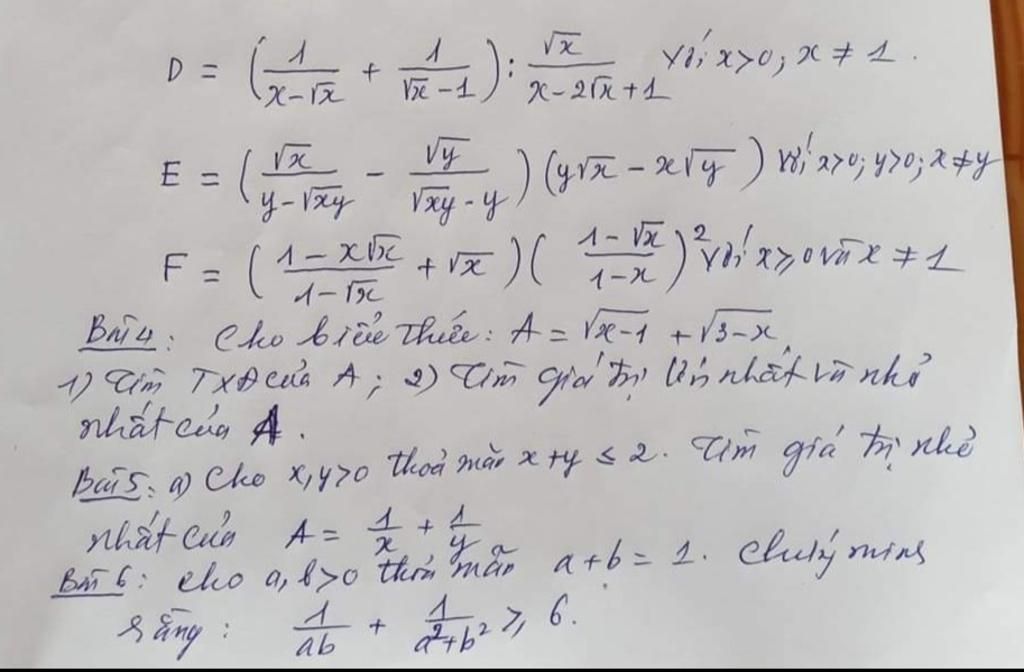 D = (1/(x-√x) + 1/(√x-1)) : √x/(x-2√x+1) với x>0; x ≠ 1.
E = (√x/(y-√xy) - √y/(√xy-y)) (y√x - x√y) với x>0; y>0; x≠y
F = ((1-x√x)/(1-√x) + √x) ((1-√x)/(1-x))² với x ≥ 0 và x ≠ 1
Bài 4: Cho biểu thức: A = √x-1 + √3-x
1) Tìm TXĐ của A; 2) Tìm giá trị lớn nhất và nhỏ
nhất của A.
Bài 5: a) Cho x, y>0 thoả mãn x+y ≤ 2. Tìm giá trị nhỏ
nhất của A = 1/x + 1/y
Bài 6: cho a, b>0 thỏa mãn a+b = 1. Chứng minh
rằng: 1/ab + 1/(a²+b²) ≥ 6.